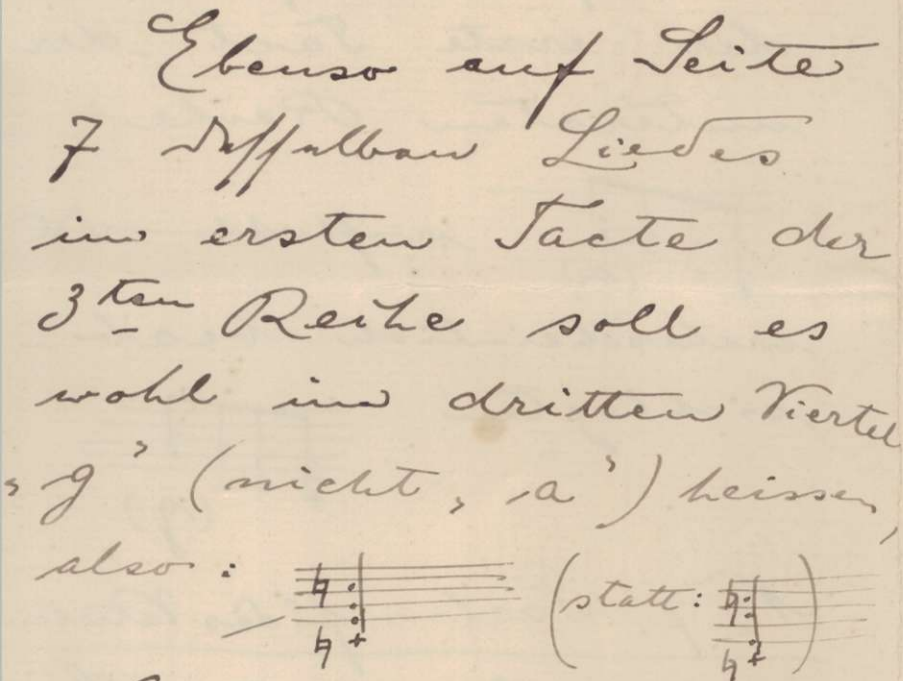 Ebenso auf Seite
7 desselben Liedes
im ersten Tacte der
3ten Reihe soll es
wohl im dritten Viertel
„g” (nicht „a”) heissen,
also:
(statt: )